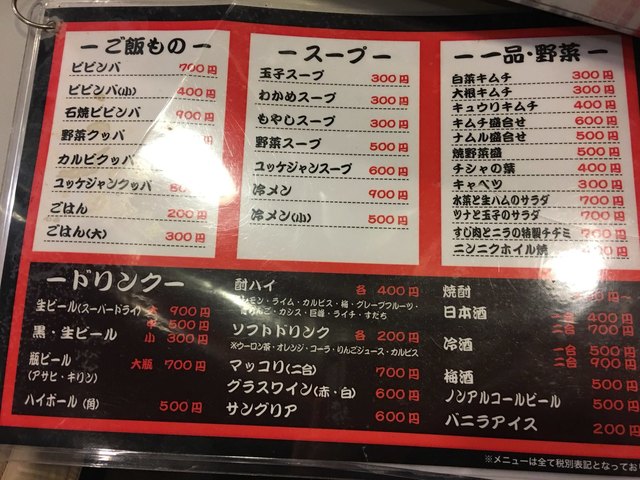 ーご飯ものー
ビビンバ 700円
ビビンバ(小) 400円
石焼ビビンバ 900円
野菜クッパ 円
カルビクッパ
ユッケジャンクッパ 円
ごはん 200円
ごはん(大) 300円
ースープー
玉子スープ 300円
わかめスープ 300円
もやしスープ 300円
野菜スープ 500円
ユッケジャンスープ 600円
冷メン 900円
冷メン(小) 500円
ー一品・野菜ー
白菜キムチ 300円
大根キムチ 300円
キュウリキムチ 400円
キムチ盛合せ 600円
ナムル盛合せ 500円
焼野菜盛 500円
チシャの葉 400円
キャベツ 300円
水菜と生ハムのサラダ 700円
ツナと玉子のサラダ 700円
すじ肉とニラの特製チヂミ 700円
ニンニクホイル焼
ードリンクー
生ビール(スーパードライ) 大 900円
中 500円
黒・生ビール 小 300円
瓶ビール 大瓶 700円
(アサヒ・キリン)
ハイボール(角) 500円
酎ハイ 各 400円
レモン・ライム・カルピス・梅・グレープフルーツ・
りんご・カシス・巨峰・ライチ・すだち
ソフトドリンク 各 200円
※ウーロン茶・オレンジ・コーラ・りんごジュース・カルピス
マッコリ(二合) 700円
グラスワイン(赤・白) 600円
サングリア 600円
焼酎 円～
日本酒 一合 400円
二合 700円
冷酒 一合 500円
二合 900円
梅酒 500円
ノンアルコールビール 500円
バニラアイス 200円
※メニューは全て税別表記となってお